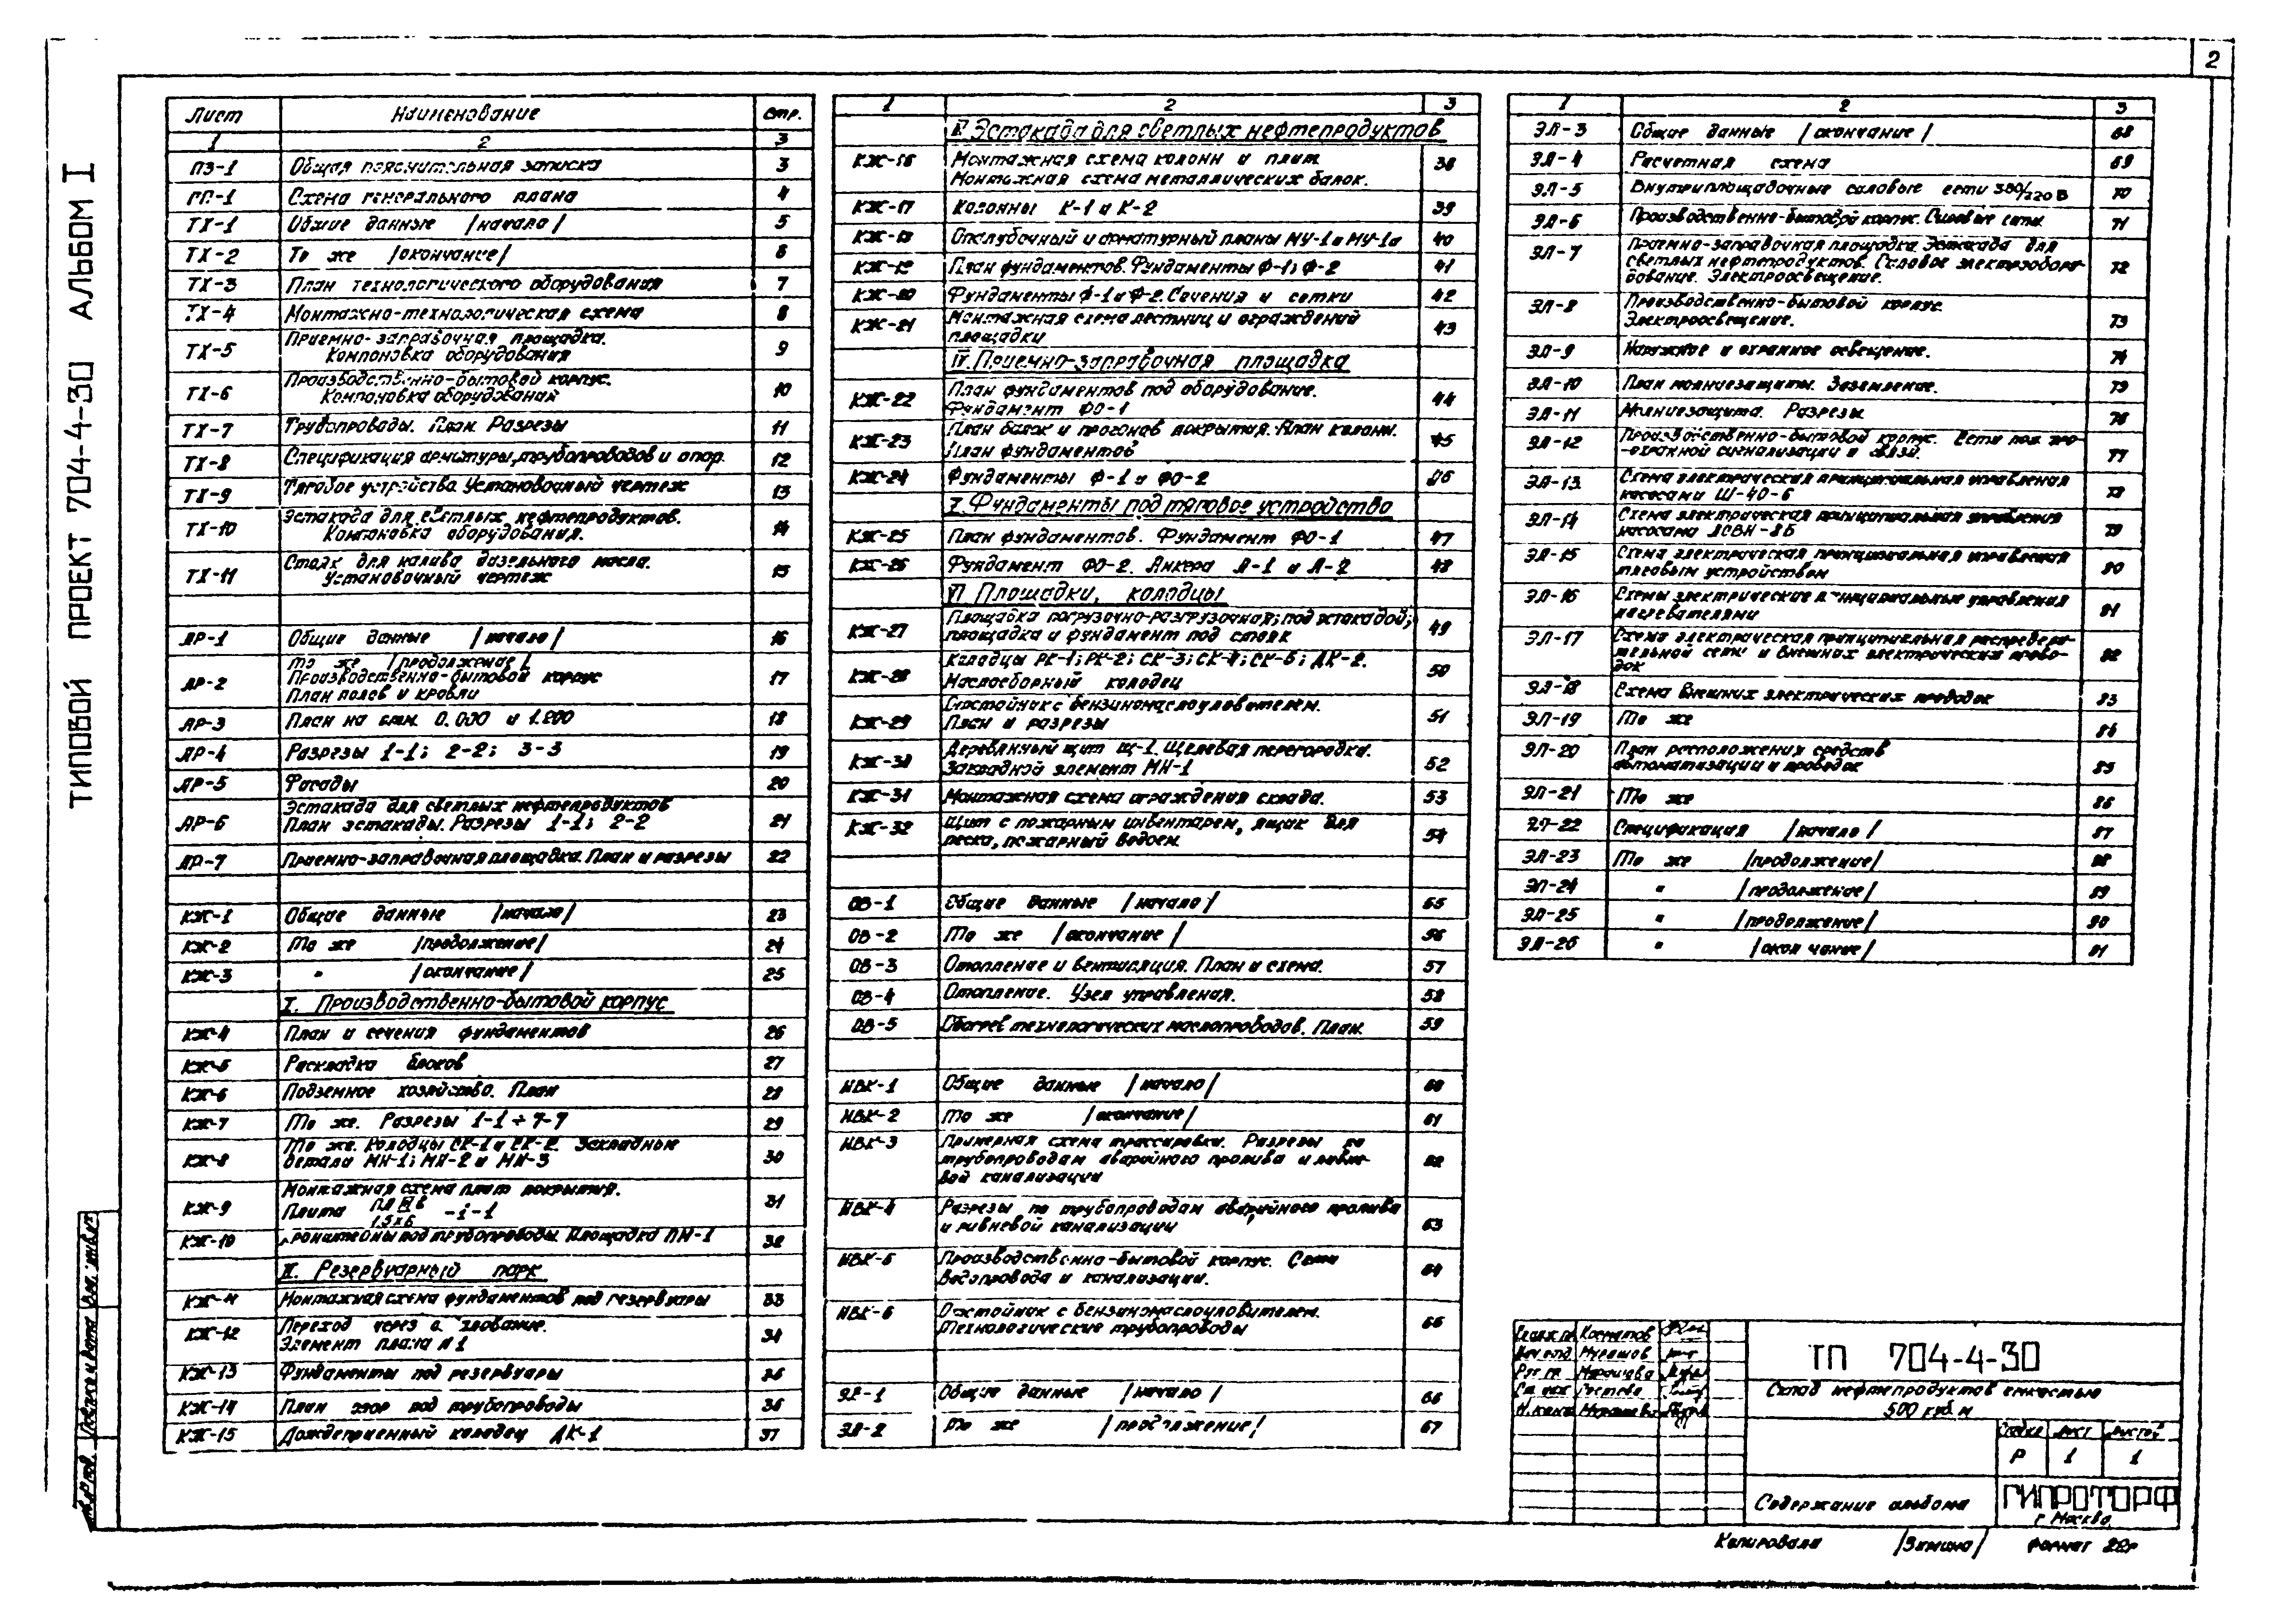 2
ТИПОВОЙ ПРОЕКТ 704-4-30 АЛЬБОМ I
Лист Наименование Стр.
1 2 3
ПЗ-1 Общая пояснительная записка 3
ГП-1 Схема генерального плана 4
ТХ-1 Общие данные /начало/ 5
ТХ-2 То же /окончание/ 6
ТХ-3 План технологического оборудования 7
ТХ-4 Монтажно-технологическая схема 8
ТХ-5 Приемно-заправочная площадка.
Компоновка оборудования 9
ТХ-6 Производственно-бытовой корпус.
Компоновка оборудования 10
ТХ-7 Трубопроводы. План. Разрезы 11
ТХ-8 Спецификация арматуры, трубопроводов и опор. 12
ТХ-9 Тяговое устройство. Установочный чертеж 13
ТХ-10 Эстакада для светлых нефтепродуктов.
Компоновка оборудования. 14
ТХ-11 Стояк для налива дизельного масла.
Установочный чертеж 15
АР-1 Общие данные /начало/ 16
АР-2 То же /продолжение/.
Производственно-бытовой корпус
План полов и кровли 17
АР-3 План на отм. 0.000 и 1.200 18
АР-4 Разрезы 1-1; 2-2; 3-3 19
АР-5 Фасады 20
АР-6 Эстакада для светлых нефтепродуктов
План эстакады. Разрезы 1-1; 2-2 21
АР-7 Приемно-заправочная площадка. План и разрезы 22
КЖ-1 Общие данные /начало/ 23
КЖ-2 То же /продолжение/ 24
КЖ-3 " /окончание/ 25
I. Производственно-бытовой корпус
КЖ-4 План и сечения фундаментов 26
КЖ-5 Раскладка блоков 27
КЖ-6 Подземное хозяйство. План 28
КЖ-7 То же. Разрезы 1-1 ÷ 7-7 29
КЖ-8 То же. Колодцы СК-1 и СК-2. Закладные
детали МН-1; МН-2 и МН-3 30
КЖ-9 Монтажная схема плит покрытия.
Плита 1.5х6 -1-1 31
КЖ-10 Кронштейны под трубопроводы. Площадка ПМ-1 32
II. Резервуарный парк
КЖ-11 Монтажная схема фундаментов под резервуары 33
КЖ-12 Переход через
Элемент плана №1 34
КЖ-13 Фундаменты под резервуары 35
КЖ-14 План опор под трубопроводы 36
КЖ-15 Дождеприемный колодец ДК-1 37
1 2 3
III Эстакада для светлых нефтепродуктов
КЖ-16 Монтажная схема колонн и плит.
Монтажная схема металлических балок. 38
КЖ-17 Колонны К-1 и К-2 39
КЖ-18 Опалубочный и арматурный планы МУ-1 и МУ-1а 40
КЖ-19 План фундаментов. Фундаменты Ф-1; Ф-2 41
КЖ-20 Фундаменты Ф-1 и Ф-2. Сечения и сетки 42
КЖ-21 Монтажная схема лестниц и ограждений
площадки 43
IV. Приемно-заправочная площадка
КЖ-22 План фундаментов под оборудование.
Фундамент ФО-1 44
КЖ-23 План балок и прогонов покрытия. План колонн.
План фундаментов 45
КЖ-24 Фундаменты Ф-1 и ФО-2 46
V. Фундаменты под тяговое устройство
КЖ-25 План фундаментов. Фундамент ФО-1 47
КЖ-26 Фундамент ФО-2. Анкера А-1 и А-2 48
VI Площадки, колодцы
КЖ-27 Площадка погрузочно-разгрузочная; под эстакадой;
площадка и фундамент под стояк 49
КЖ-28 Колодцы РК-1; РК-2; СК-3; СК-4; СК-5; ДК-2.
Маслосборный колодец 50
КЖ-29 Отстойник с бензиномаслоуловителем.
План и разрезы 51
КЖ-30 Деревянный щит Щ-1. Щелевая перегородка.
Закладной элемент МН-1 52
КЖ-31 Монтажная схема ограждения склада. 53
КЖ-32 Щит с пожарным инвентарем, ящик для
песка, пожарный водоем. 54
ОВ-1 Общие данные /начало/ 55
ОВ-2 То же /окончание/ 56
ОВ-3 Отопление и вентиляция. План и схема. 57
ОВ-4 Отопление. Узел управления. 58
ОВ-5 Обогрев технологических маслопроводов. План. 59
НВК-1 Общие данные /начало/ 60
НВК-2 То же /окончание/ 61
НВК-3 Примерная схема трассировки. Разрезы по
трубопроводам аварийного пролива и ливне-
вой канализации 62
НВК-4 Разрезы по трубопроводам аварийного пролива
и ливневой канализации 63
НВК-5 Производственно-бытовой корпус. Сети
водопровода и канализации. 64
НВК-6 Отстойник с бензиномаслоуловителем.
Технологические трубопроводы 65
ЭЛ-1 Общие данные /начало/ 66
ЭЛ-2 То же /продолжение/ 67
1 2 3
ЭЛ-3 Общие данные /окончание/ 68
ЭЛ-4 Расчетная схема 69
ЭЛ-5 Внутриплощадочные силовые сети 380/220 В 70
ЭЛ-6 Производственно-бытовой корпус. Силовые сети. 71
ЭЛ-7 Приемно-заправочная площадка. Эстакада для
светлых нефтепродуктов. Силовое электрооборо-
дование. Электроосвещение. 72
ЭЛ-8 Производственно-бытовой корпус.
Электроосвещение. 73
ЭЛ-9 Наружное и охранное освещение. 74
ЭЛ-10 План молниезащиты. Заземление. 75
ЭЛ-11 Молниезащита. Разрезы 76
ЭЛ-12 Производственно-бытовой корпус. Сети пож.
-охранной сигнализации и связи. 77
ЭЛ-13 Схема электрическая принципиальная управления
насосами Ш-40-6 78
ЭЛ-14 Схема электрическая принципиальная управления
насосами АСВН-80 79
ЭЛ-15 Схема электрическая принципиальная управления
тяговым устройством 80
ЭЛ-16 Схемы электрические принципиальные управления
нагревателями 81
ЭЛ-17 Схема электрическая принципиальная распредели-
тельной сети и внешних электрических прово-
док 82
ЭЛ-18 Схема внешних электрических проводок 83
ЭЛ-19 То же 84
ЭЛ-20 План расположения средств
автоматизации и проводок 85
ЭЛ-21 То же 86
ЭЛ-22 Спецификация /начало/ 87
ЭЛ-23 То же /продолжение/ 88
ЭЛ-24 " /продолжение/ 89
ЭЛ-25 " /продолжение/ 90
ЭЛ-26 " /окончание/ 91
ТП 704-4-30
Склад нефтепродуктов емкостью
500 куб. м
Стадия Лист Листов
Р 1 1
Содержание альбома
ГИПРОТОРФ
г. Москва
Копировала /Зимина/ Формат 22г
Подпись и дата